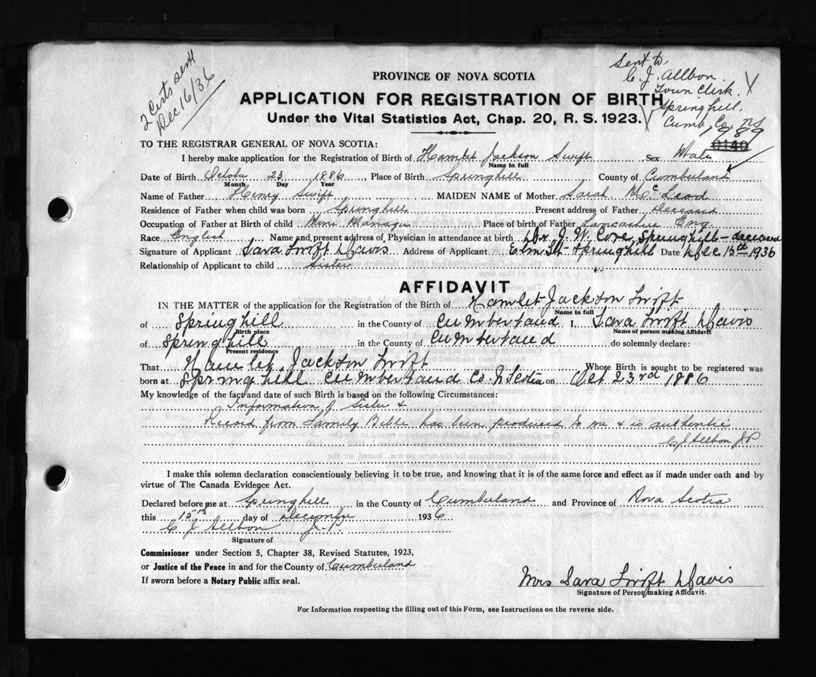 2 Certs sent
Dec 16/36
Sent to
C. J. Allbon.
Town Clerk.
Springhill.
Cumb. Co. N.S.
1989
0140
PROVINCE OF NOVA SCOTIA
APPLICATION FOR REGISTRATION OF BIRTH
Under the Vital Statistics Act, Chap. 20, R. S. 1923.
TO THE REGISTRAR GENERAL OF NOVA SCOTIA:
I hereby make application for the Registration of Birth of Hamlet Jackson Swift Sex Male
Name in full
Date of Birth October 23 1886 Place of Birth Springhill County of Cumberland
Month Day Year
Name of Father Henry Swift MAIDEN NAME of Mother Sarah McLeod
Residence of Father when child was born Springhill Present address of Father Deceased
Occupation of Father at Birth of child Mine Manager Place of birth of Father Lancashire Eng
Race English Name and present address of Physician in attendance at birth Dr. J. W. Cove, Springhill - deceased
Signature of Applicant Sara Swift Davis Address of Applicant Elm St - Springhill Date Dec 15th 1936
Relationship of Applicant to child Sister
AFFIDAVIT
IN THE MATTER of the application for the Registration of the Birth of Hamlet Jackson Swift
Name in full
of Springhill in the County of Cumberland I, Sara Swift Davis
Birth place Name of person making Affidavit
of Springhill in the County of Cumberland do solemnly declare:
Present residence
That Hamlet Jackson Swift Whose Birth is sought to be registered was
born at Springhill Cumberland Co. N Scotia on Oct 23rd 1886
My knowledge of the fact and date of such Birth is based on the following Circumstances:
Information of Sister &
Record from Family Bible has been produced to me & is authentic
C J Allbon J P
I make this solemn declaration conscientiously believing it to be true, and knowing that it is of the same force and effect as if made under oath and by
virtue of The Canada Evidence Act.
Declared before me at Springhill in the County of Cumberland and Province of Nova Scotia
this 15th day of December 1936
C J Allbon J. P.
Signature of
Commissioner under Section 5, Chapter 38, Revised Statutes, 1923,
or Justice of the Peace in and for the County of Cumberland
If sworn before a Notary Public affix seal.
Mrs Sara Swift Davis
Signature of Person making Affidavit.
For Information respecting the filling out of this Form, see Instructions on the reverse side.